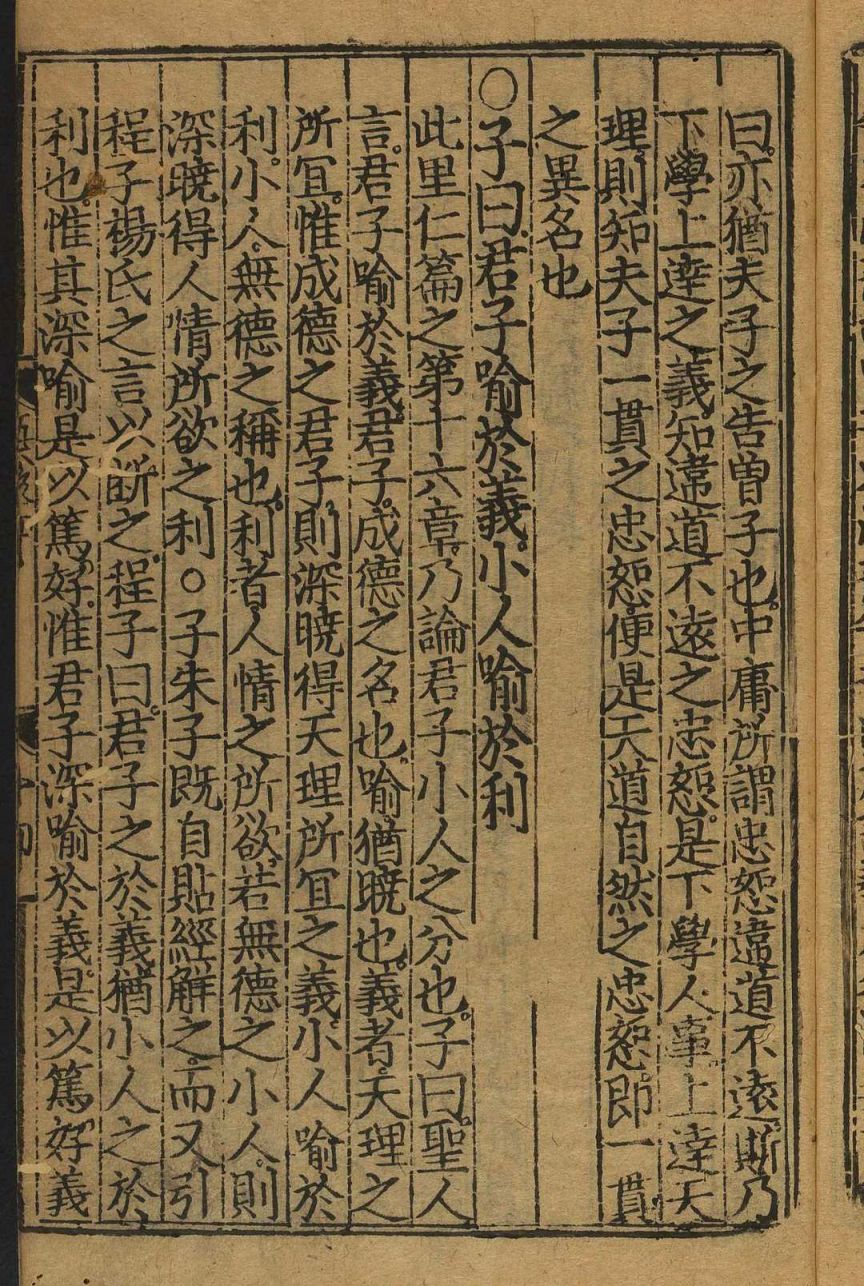 曰。亦猶夫子之告曾子也。中庸所謂忠恕違道不遠。斯乃
下學上達之義。知違道不遠之忠恕。是下學人事。上達天
理。則知夫子一貫之忠恕。便是天道自然之忠恕。即一貫
之異名也
○子曰。君子喻於義。小人喻於利
此里仁篇之第十六章。乃論君子小人之分也。子曰。聖人
言。君子喻於義。君子。成德之名也。喻。猶曉也。義者。天理之
所冝。惟成德之君子。則深曉得天理所冝之義。小人喻於
利。小人。無德之稱也。利者。人情之所欲。若無德之小人。則
深曉得人情所欲之利○子朱子既自貼經解之。而又引
程子楊氏之言以斷之。程子曰。君子之於義。猶小人之於
利也。惟其深喻。是以篤好。惟君子深喻於義。是以篤好義